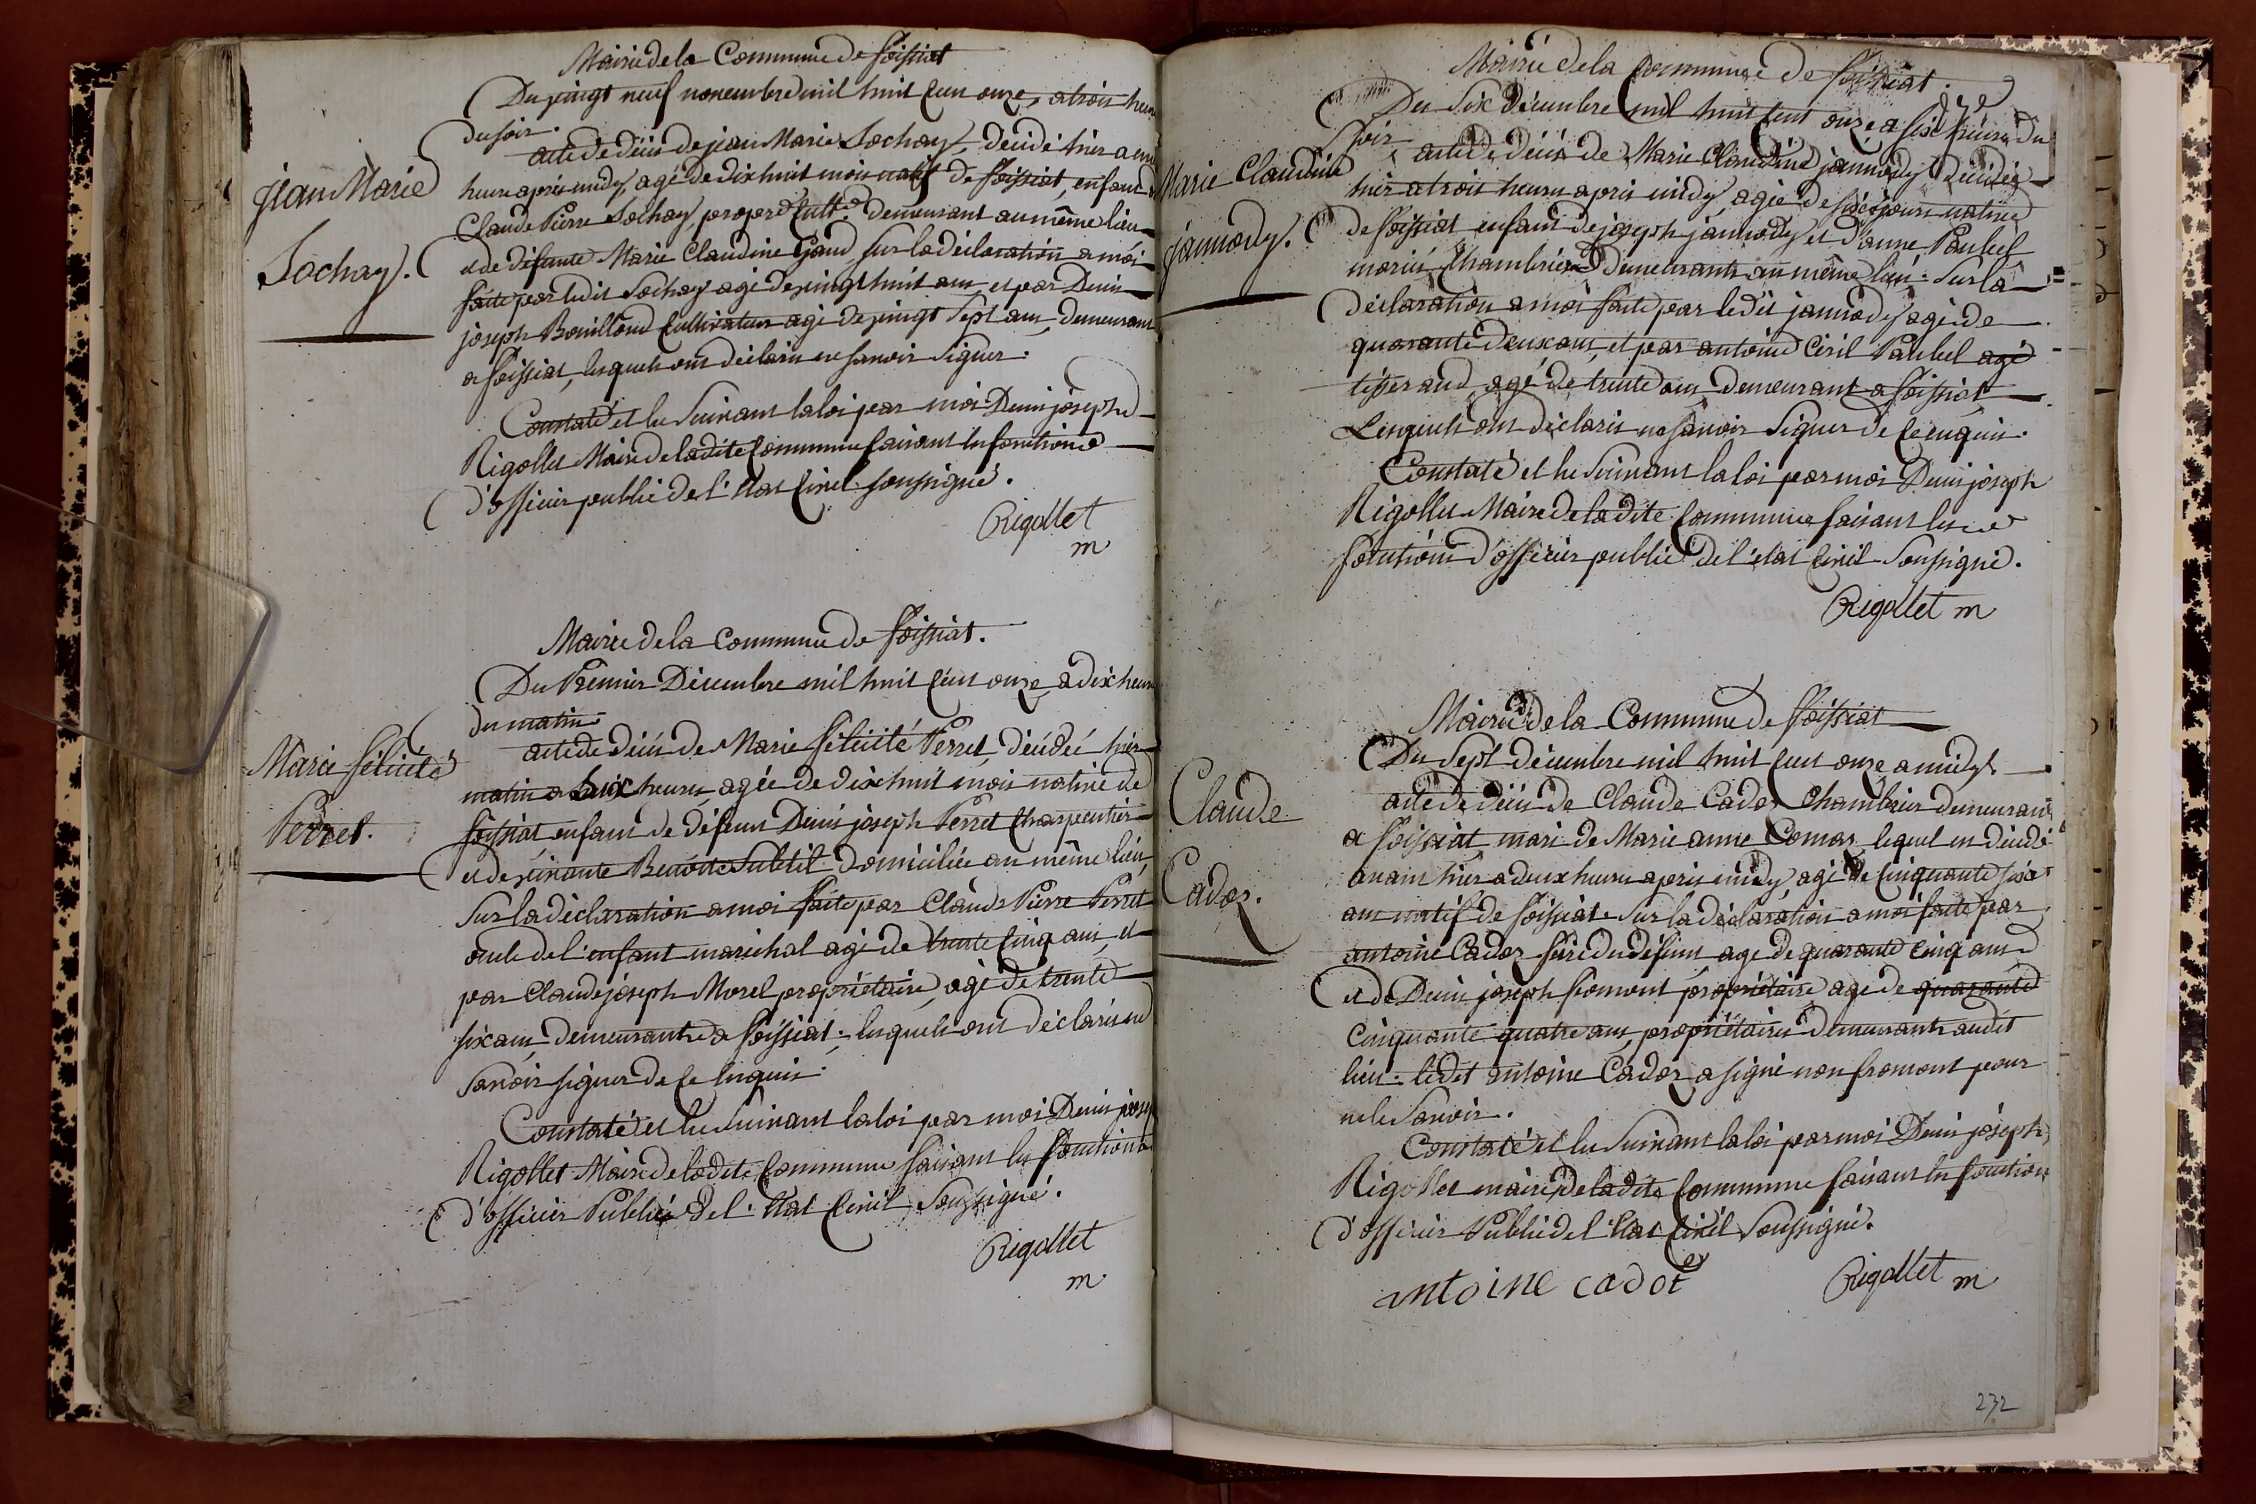 Mairie de la Commune de foissiat
Du vingt neuf novembre mil huit Cent onze, a trois heures
du soir.
acte de décès de jean Marie Sochay, décédé hier a une
heure après midy, agé de dix huit mois natif de foissiat, enfant de
Claude Pierre Sochay, propre. Cult. demeurant au même lieu
et de défunte Marie Claudine Gaud sur la déclaration a moi
faite par ledit Sochay agé de vingt huit ans, et par Denis
joseph Bouilloud Cultivateur agé de vingt Sept ans, demeurant
a foissiat, lesquels ont déclaré ne savoir signer.
Constaté et lu Suivant la loi par moi Denis joseph
Rigollet Maire de ladite Commune faisant les fonctions
d'officier public de l'Etat Civil soussigné.
Rigollet
m
jean Marie
Sochay.
Mairie de la Commune de foissiat.
Du Premier Décembre mil huit Cent onze, a dix heures
du matin
acte de décès de Marie félicité Perret, décédée hier
matin a Six heures, agée de dix huit mois native de
foissiat, enfant de défunt Denis joseph Perret Charpentier
et de vivante Benoite Subtil domiciliée au même lieu,
Sur la déclaration a moi faite par Claude Pierre Perret
oncle de l'enfant maréchal agé de trente Cinq ans, et
par Claude joseph Morel propriétaire, agé de trente
six ans, demeurants a foissiat, lesquels ont déclaré ne
Savoir signer de Ce Enquis.
Constaté et lu Suivant la loi par moi Denis joseph
Rigollet Maire de ladite Commune faisant les fonctions
d'officier Public de l'Etat Civil Soussigné.
Rigollet
m
Marie félicité
Perret.
Mairie de la Commune de foissiat.
Du Six Décembre mil huit Cent onze a six heures du
Soir
acte de décès de Marie Claudine jannody décédée
hier a trois heures après midy, agée de six jours native
de foissiat enfant de joseph jannody et d'anne Paubel
mariés Chambriers demeurants au même lieu. Sur la
déclaration a moi faite par ledit jannody agé de
quarante deux ans, et par antoine Ciril Paubel agé
tisserand, agé de trente ans, demeurant a foissiat
Lesquels ont déclaré ne savoir signer de Ce enquis.
Constaté et lu Suivant la loi par moi Denis joseph
Rigollet Maire de ladite Commune faisant les
fonctions d'officier public de l'état Civil Soussigné.
Rigollet m
Marie Claudine
jannody.
Mairie de la Commune de foissiat
Du Sept décembre mil huit Cent onze a midy.
acte de décès de Claude Cadoz Chambrier demeurant
a foissiat, mari de Marie anne Comas, lequel est décédé
avant hier a deux heures après midy, agé de Cinquante six
ans natif de foissiat. Sur la déclaration a moi faite par
antoine Cadoz frère du défunt, agé de quarante Cinq ans
et de Denis joseph fromont propriétaire agé de quarante
Cinquante quatre ans, propriétaires demeurants audit
lieu. ledit antoine Cadoz a signé non fromont pour
ne le Savoir.
Constaté et lu Suivant la loi par moi Denis joseph
Rigollet maire de ladite Commune faisant les fonctions
d'officier Public de l'Etat Civil Soussigné.
antoine cadot
Rigollet m
Claude
Cadoz.
232